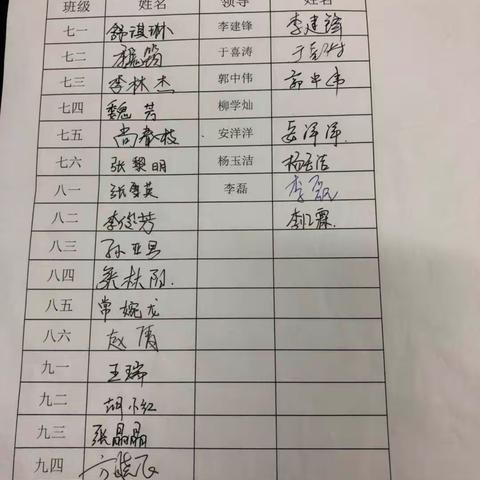 班级 姓名 领导 姓名
七一 舒琪琳 李建锋 李建锋
七二 于喜涛
七三 李林杰 郭中伟 郭中伟
七四 魏芳 柳学灿
七五 尚春枝 安洋洋 安洋洋
七六 张黎明 杨玉洁 杨玉洁
八一 张雪英 李磊 李磊
八二 李俊芳
八三 孙亚旦
八四
八五 常婉龙
八六 赵倩
九一 王瑞
九二 胡小红
九三 张晶晶
九四